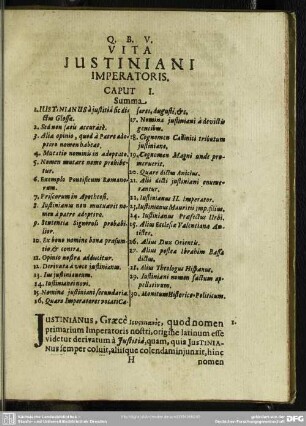 Q. B. V.
VITA
JUSTINIANI
IMPERATORIS.
CAPUT I.
Summa.
1. JUSTINIANUS à justitia sic di-
ctus Glossa.
2. Sed non satis accuratè.
3. Alia opinio, quod à Patre ado-
ptivo nomen habeat.
4. Mutatio nominis in adoptato.
5. Nomen mutare nemo prohibe-
tur.
6. Exemplo Pontificum Romano-
rum.
7. Priscorum in Apotheosi.
8. Justinianus non mutuavit no-
men à patre adoptivo.
9. Sententia Signeroli probabi-
lior.
10. Ex bono nomine bona præsum-
tio & contra.
11. Opinio nostra adducitur.
12. Derivata à voce justinianum.
13. Jus justinianeum.
14. Justinianei novi.
15. Nomina justiniani secundaria.
16. Quare Imperatores vocati Cæ-
sares, Augusti, &c.
17. Nomina justiniani à devictis
gentibus.
18. Cognomen Callinici tributum
justiniano.
19. Cognomen Magni unde pro-
meruerit.
20. Quare dictus Anicius.
21. Alii dicti justiniani enume-
rantur.
22. Justinianus II. Imperator.
23. Justinianus Mauricii
24. Justinianus Præfectus Urbi.
25. Alius Ecclesiæ Valentinæ An-
tistes.
26. Alius Dux Orientis.
27. Alius postea Ibrahim Bassa
dictus.
28. Alius Theologus Hispanus.
29. Justiniani nomen factum ap-
pellativum.
30. Monitum Historico-Politicum.
JUSTINIANUS, Græcè Ἰουστινιανὸς, quod nomen 1.
primarium Imperatoris nostri, origine latinum esse
videtur derivatum à Justitiâ, quam, quia JUSTINIA-
NUS semper coluit, aliisque colendam injunxit, hinc
H nomen